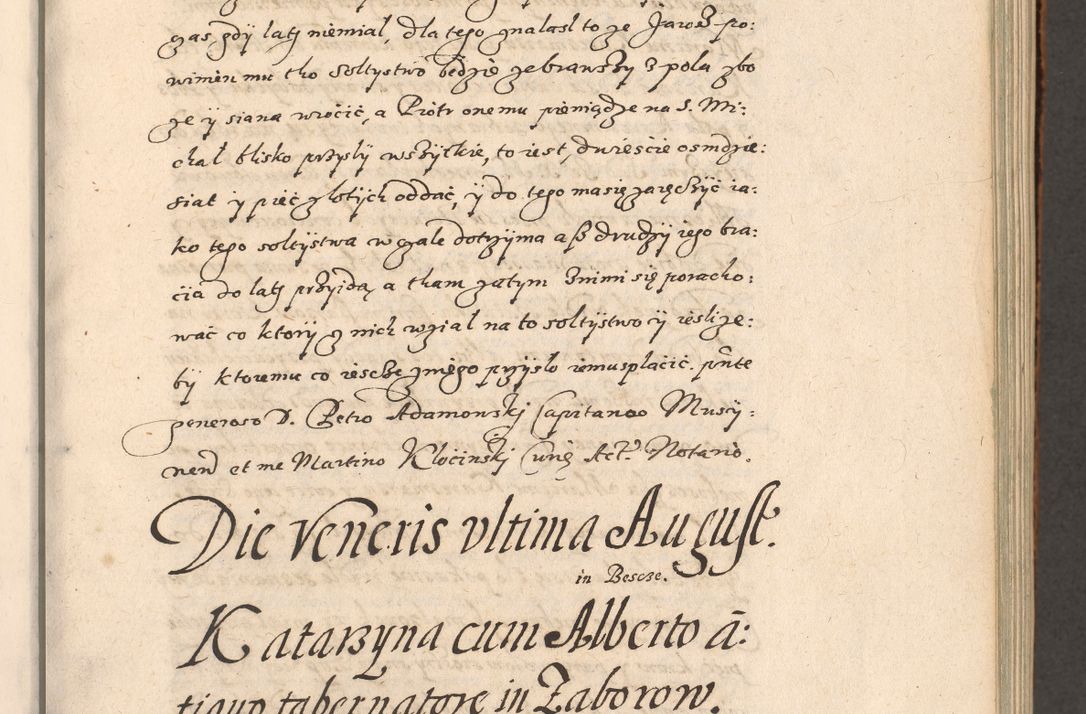 zas gdy latj niemial, dla tego znalasl to ze Jarosz po:
winien mu tho soltystwo będzie zebrawszy z pola zbo
ze y siana wrócić, a Piotr onemu pieniądze na S. Mi:
chal blisko przysly wszytkie, to iest, dwieście osmdzie:
siat y pięć zlotych oddać, y do tego ma się zaręczyć ia:
ko tego soltystwa w cale dotrzyma asz drudzy iego bra:
cia do latj przyida, a tham zatym z nimi się poracho:
wać co ktory z nich wzial na to soltystwo y iesli ze:
by ktoremu co iescze z niego przyslo iemu splacić. pñte
generoso D. Petro Adamowskj Capitaneo Muscy:
nen et me Martino Klocinskj Curię Act. Notario.
Die Veneris vltima August.
in Bescze.
Katarzyna cum Alberto ā:
tiquo tabernatore in Zaborow.